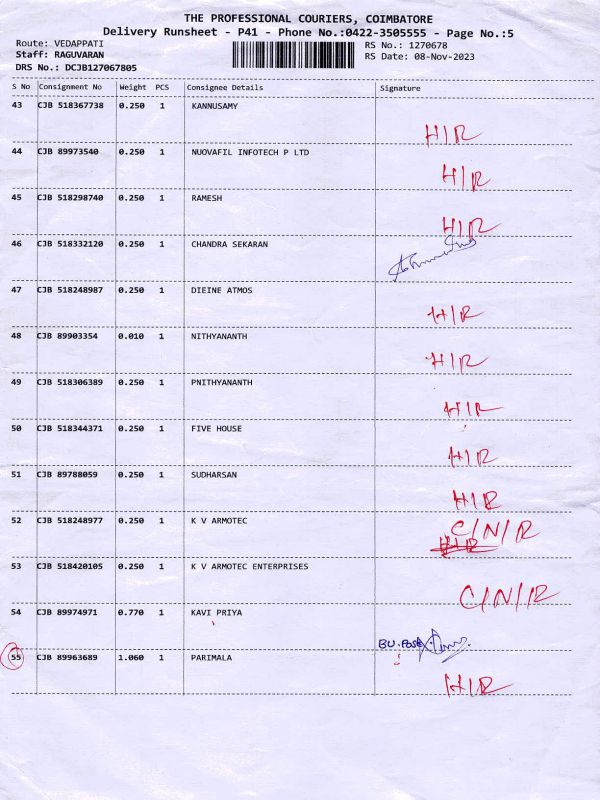 THE PROFESSIONAL COURIERS, COIMBATORE
Delivery Runsheet - P41 - Phone No.:0422-3505555 - Page No.:5
Route: VEDAPPATI RS No.: 1270678
Staff: RAGUVARAN RS Date: 08-Nov-2023
DRS No.: DCJB127067805
S No Consignment No Weight PCS Consignee Details Signature
43 CJB 518367738 0.250 1 KANNUSAMY
H/R
44 CJB 89973540 0.250 1 NUOVAFIL INFOTECH P LTD
H/R
45 CJB 518298740 0.250 1 RAMESH
H/R
46 CJB 518332120 0.250 1 CHANDRA SEKARAN
47 CJB 518248987 0.250 1 DIEINE ATMOS
H/R
48 CJB 89903354 0.010 1 NITHYANANTH
H/R
49 CJB 518306389 0.250 1 PNITHYANANTH
H/R
50 CJB 518344371 0.250 1 FIVE HOUSE
H/R
51 CJB 89788059 0.250 1 SUDHARSAN
H/R
52 CJB 518248977 0.250 1 K V ARMOTEC
C/N/R
H/R
53 CJB 518420105 0.250 1 K V ARMOTEC ENTERPRISES
C/N/R
54 CJB 89974971 0.770 1 KAVI PRIYA
55 CJB 89963689 1.060 1 PARIMALA
H/R